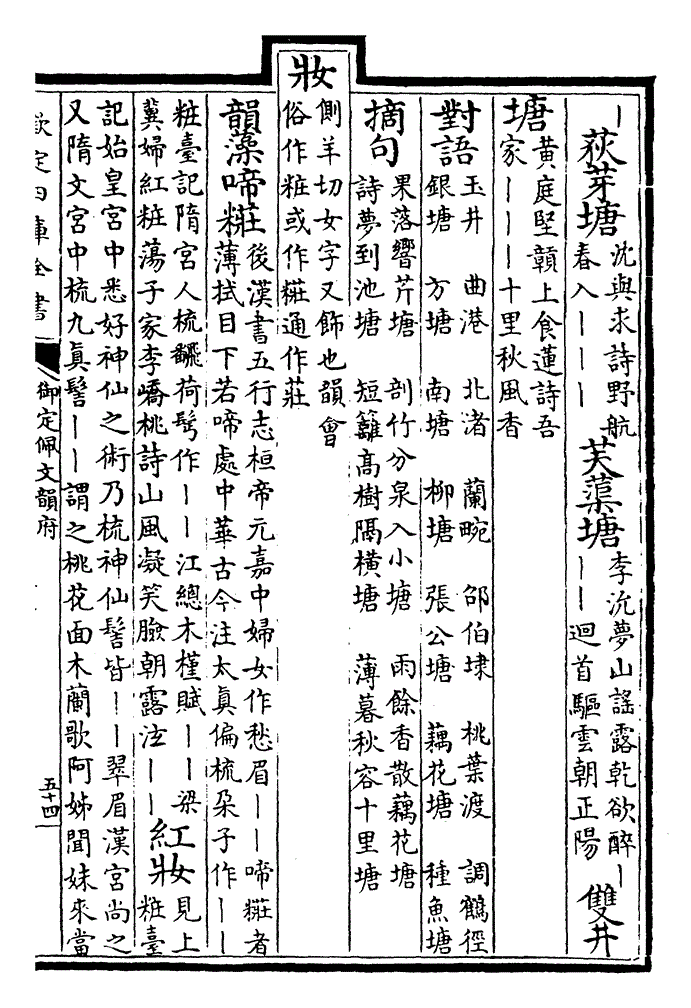 丨荻芽塘沈與求詩野航
春入丨丨丨
芙蕖塘李沇夢山謠露乾欲醉丨
丨丨迴首驅雲朝正陽
雙井
塘黃庭堅贛上食蓮詩吾
家丨丨丨十里秋風香
對語玉井 曲港 北渚 蘭畹 邵伯埭 桃葉渡 調鶴徑
銀塘 方塘 南塘 柳塘 張公塘 藕花塘 種魚塘
摘句果落響芹塘 剖竹分泉入小塘 雨餘香散藕花塘
詩夢到池塘 短籬高樹隔橫塘 薄暮秋容十里塘
妝側羊切女字又飾也韻會
俗作粧或作糚通作莊
韻藻啼糚後漢書五行志桓帝元嘉中婦女作愁眉丨丨啼糚者
薄拭目下若啼處中華古今注太真偏梳朶子作丨丨
粧臺記隋宮人梳翻荷髩作丨丨江總木槿賦丨丨梁
冀婦紅粧蕩子家李嶠桃詩山風凝笑臉朝露泫丨丨
紅妝見上
粧臺
記始皇宮中悉好神仙之術乃梳神仙髻皆丨丨翠眉漢宮尚之
又隋文宮中梳九眞髻丨丨謂之桃花面木蘭歌阿姊聞妹來當
欽定四庫全書
御定佩文韻府
五十四